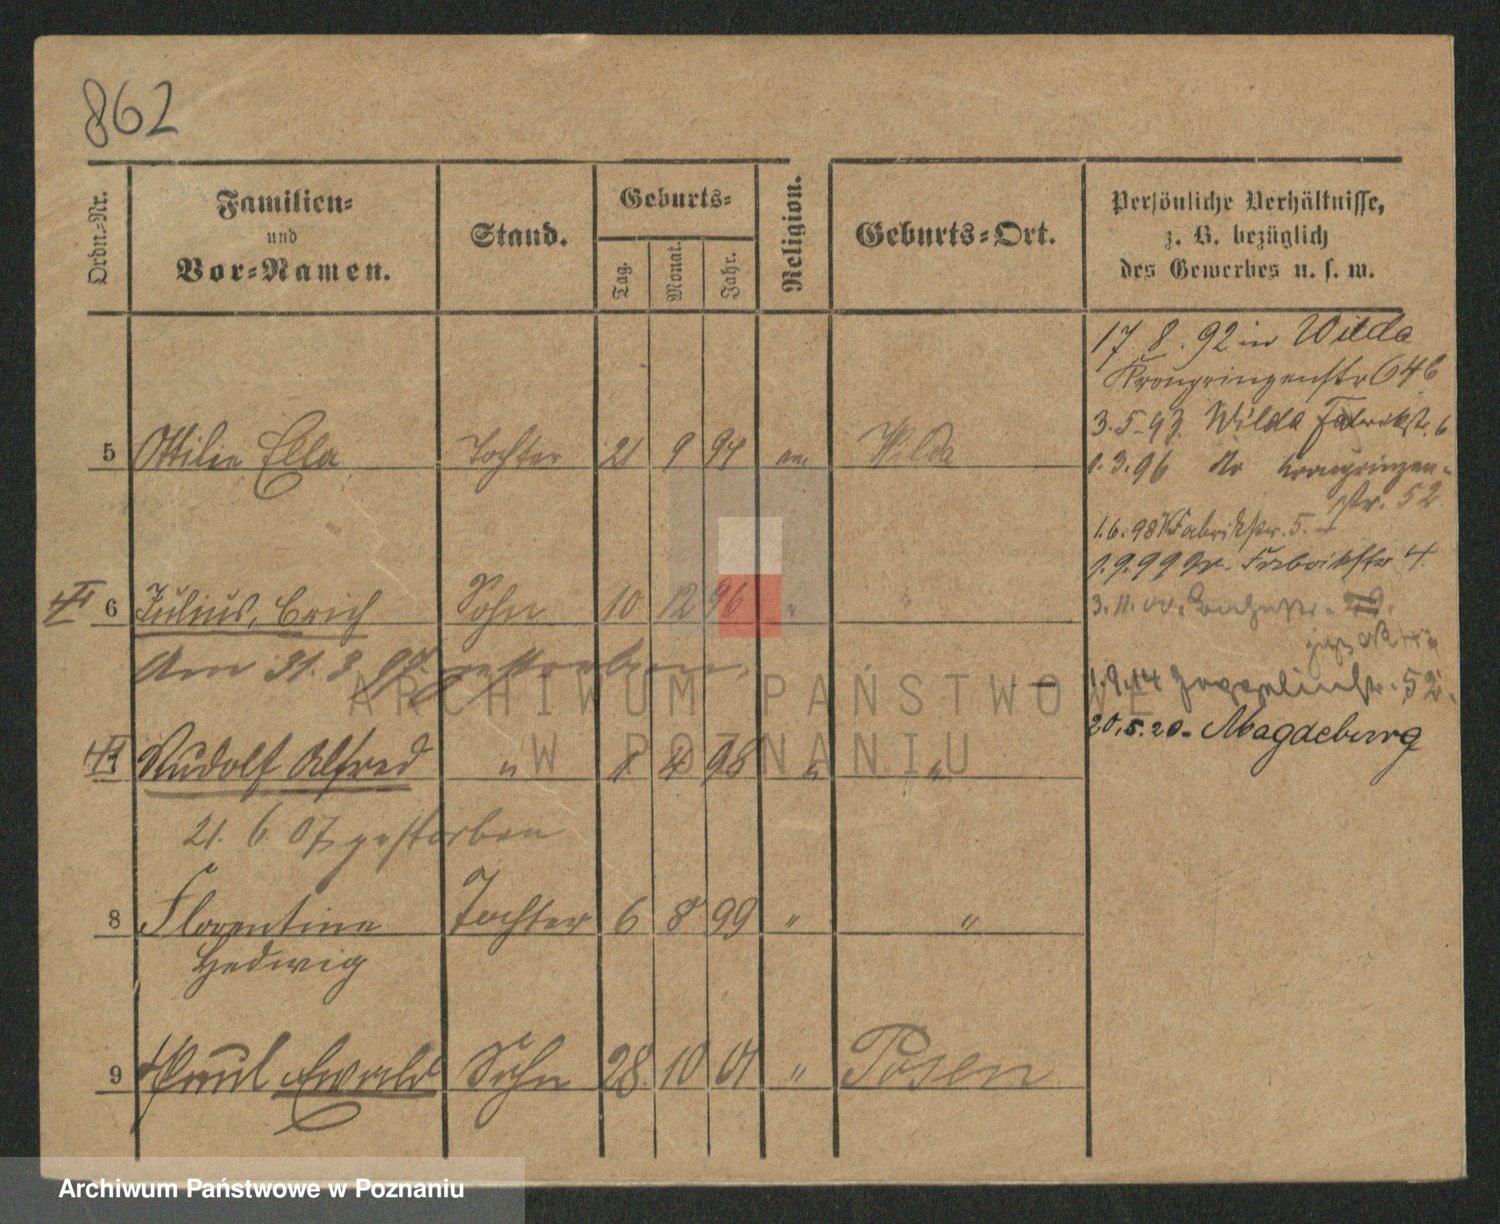 862
Ordn.-Nr.
Familien-
und
Vor-Namen.
Stand.
Geburts-
Tag.
Monat.
Jahr.
Religion.
Geburts-Ort.
Persönliche Verhältnisse,
z. B. bezüglich
des Gewerbes u. s. w.
17 8. 92 in Wilda
Kronprinzenstr 64b
3.5.93. Wilda Fabrikstr. 6
5 Ottilie Ella Tochter 21 9 94 ev. Wilda
1.3.96 Kronprinzen-
str. 52
1.6.98 Fabrikstr. 5.
1.9.99 Fabrikstr 4.
6 Julius, Erich Sohn 10 12 96 " "
3.11.00.
Am 31.3.97. gestorben.
1.9.14 52.
20.5.20. Magdeburg
7 Rudolf Alfred " 1 4 98 " "
21. 6. 07 gestorben
8 Florentine Tochter 6 8 99 " "
Hedwig
9 Paul Ewald Sohn 28. 10 01 " Posen
ARCHIWUM PAŃSTWOWE
W POZNANIU
Archiwum Państwowe w Poznaniu